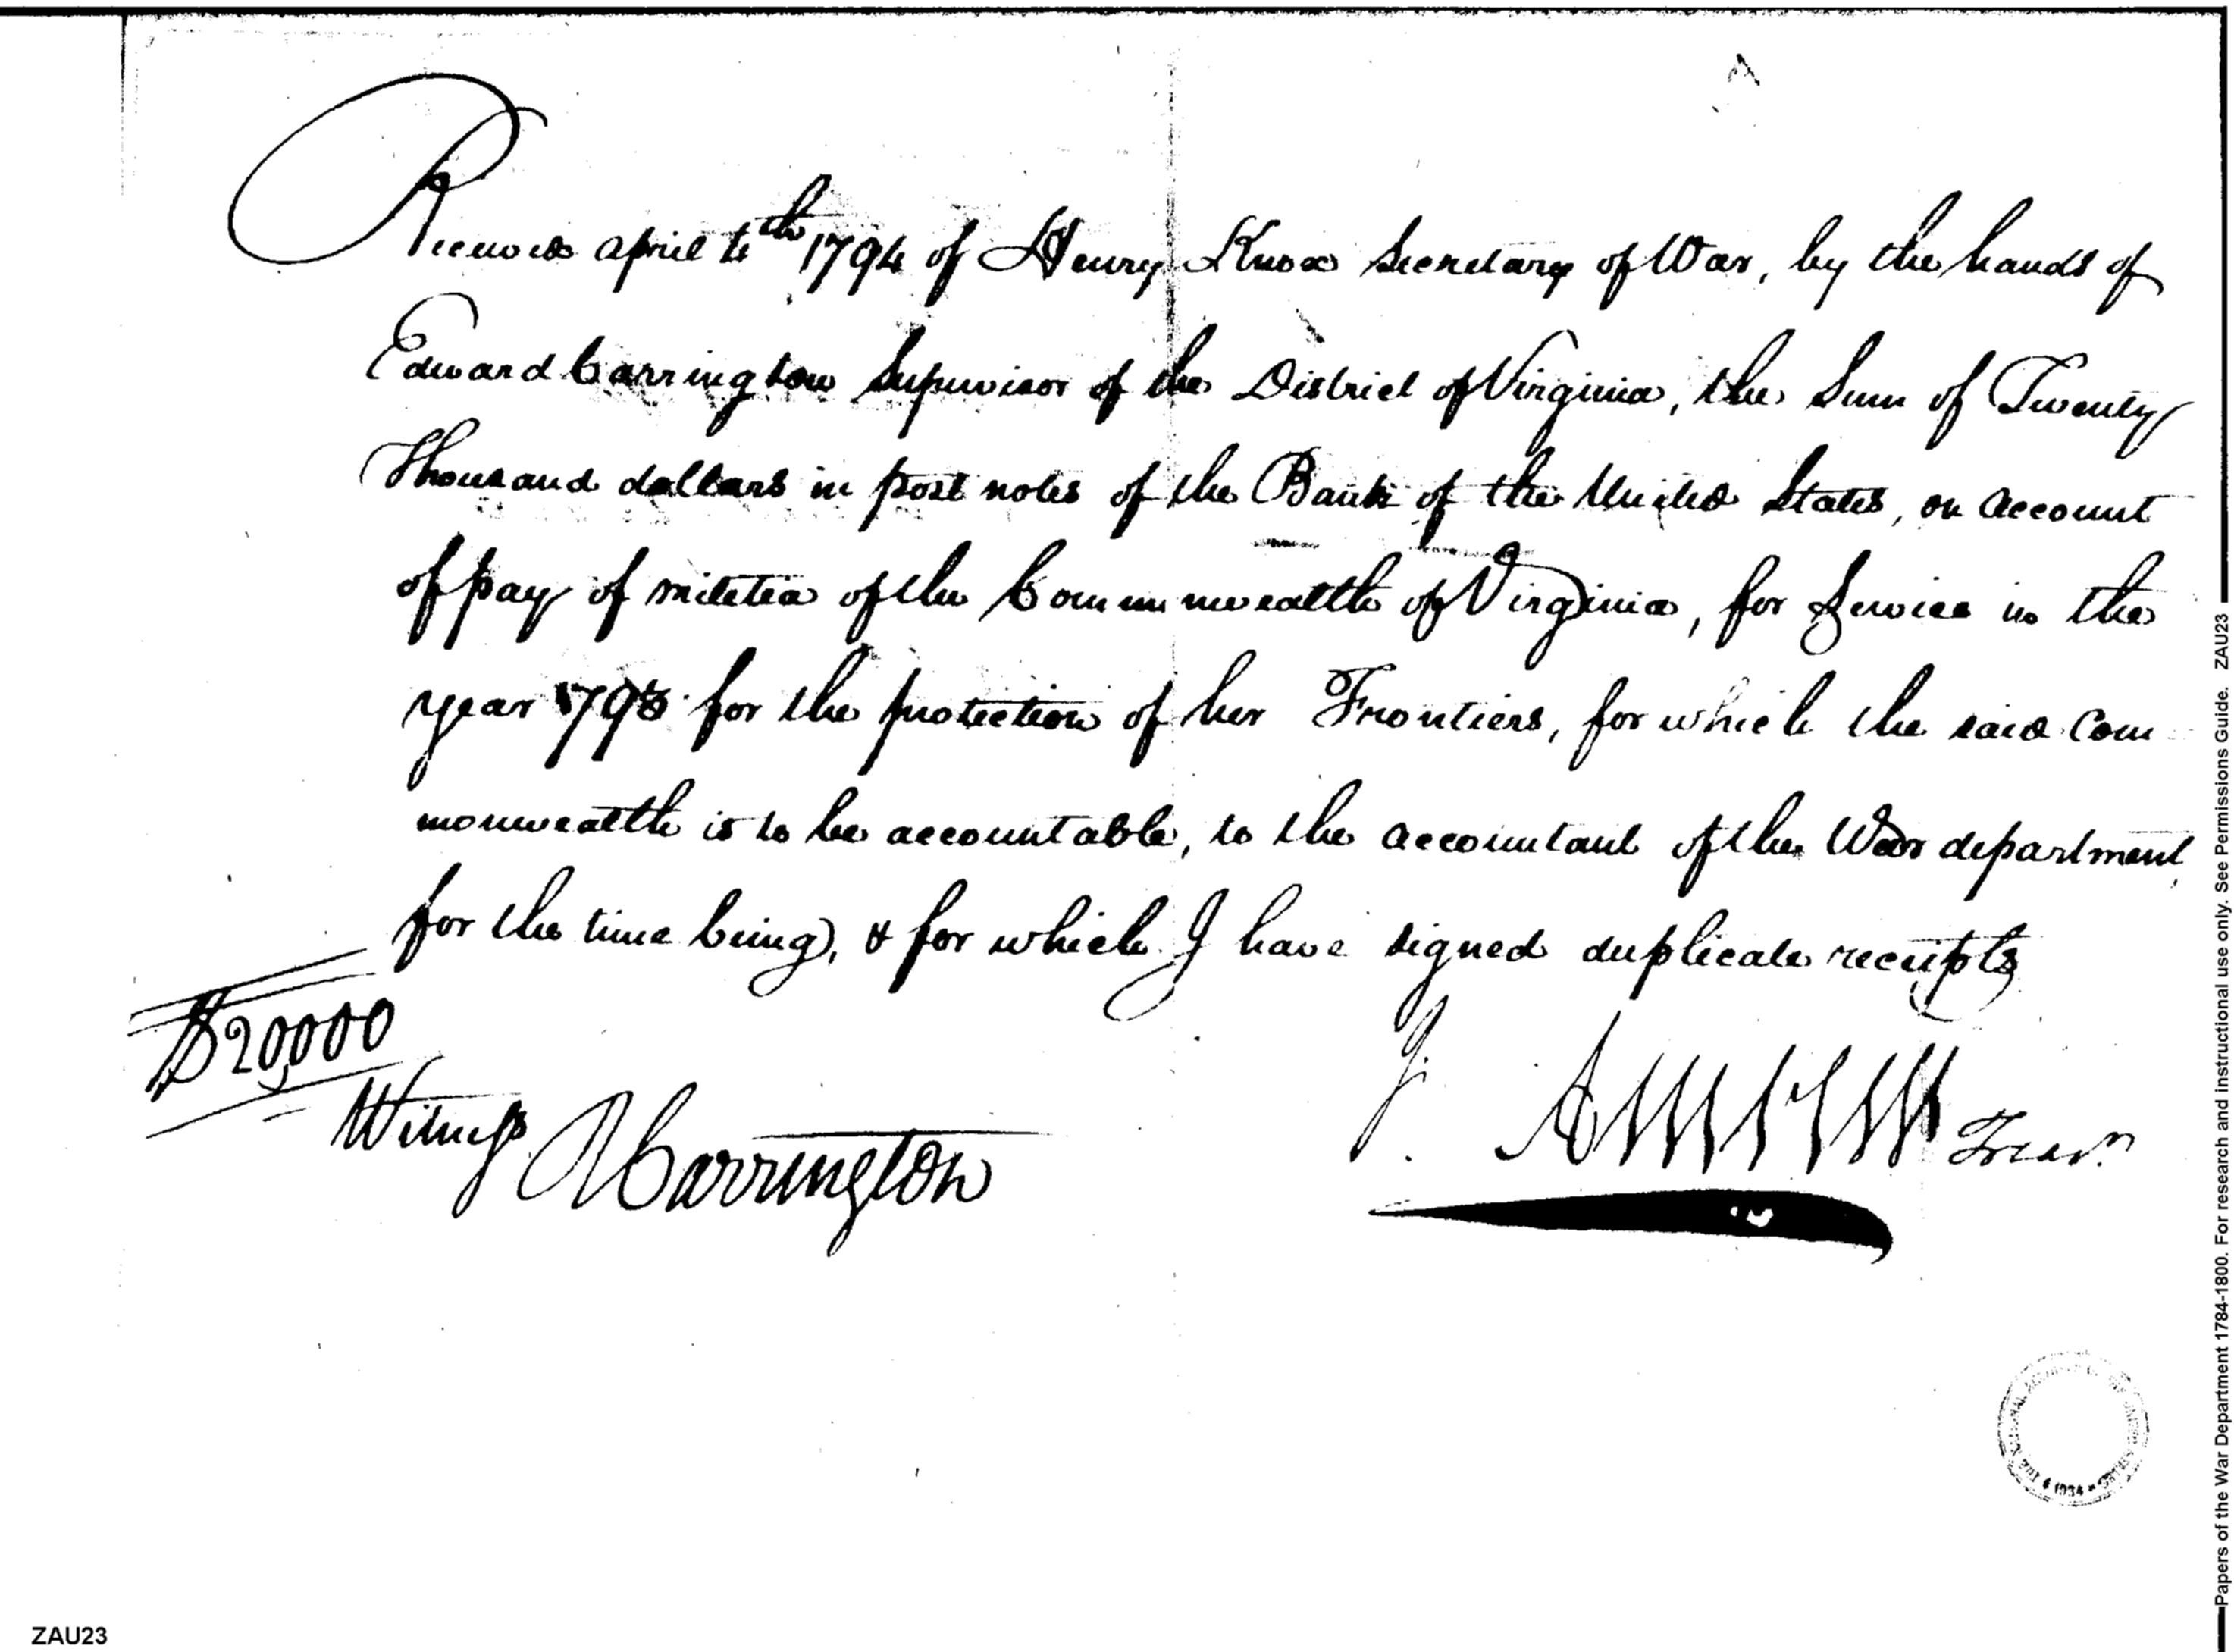 Received april 4th 1794 of Henry Knox Secretary of War, by the hands of
Edward Carrington Supervisor of the District of Virginia, the Sum of Twenty
Thousand dollars in post notes of the Bank of the United States, on account
of pay of militia of the Commonwealth of Virginia, for Service in the
year 1793 for the protection of her Frontiers, for which the said Com
monwealth is to be accountable, to the accountant of the War department
for the time being), & for which I have signed duplicate receipts
$20,000
Witness Carrington
J. Trear.
ZAU23
Papers of the War Department 1784-1800. For research and instructional use only. See Permissions Guide. ZAU23